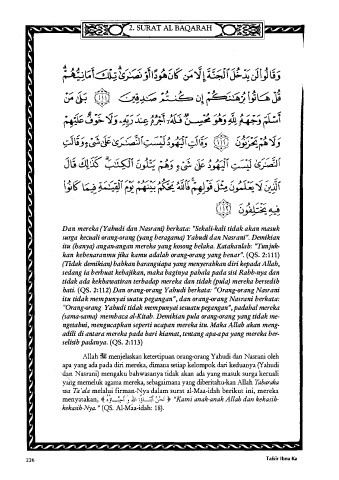 2. SURAT AL BAQARAH
وَقَالُوا لَن يَدْخُلَ الْجَنَّةَ إِلَّا مَن كَانَ هُودًا أَوْ نَصَارَىٰ تِلْكَ أَمَانِيُّهُمْ
قُلْ هَاتُوا بُرْهَانَكُمْ إِن كُنتُمْ صَادِقِينَ ﴿١١١﴾ بَلَىٰ مَنْ
أَسْلَمَ وَجْهَهُ لِلَّهِ وَهُوَ مُحْسِنٌ فَلَهُ أَجْرُهُ عِندَ رَبِّهِ وَلَا خَوْفٌ عَلَيْهِمْ
وَلَا هُمْ يَحْزَنُونَ ﴿١١٢﴾ وَقَالَتِ الْيَهُودُ لَيْسَتِ النَّصَارَىٰ عَلَىٰ شَيْءٍ وَقَالَتِ
النَّصَارَىٰ لَيْسَتِ الْيَهُودُ عَلَىٰ شَيْءٍ وَهُمْ يَتْلُونَ الْكِتَابَ كَذَٰلِكَ قَالَ
الَّذِينَ لَا يَعْلَمُونَ مِثْلَ قَوْلِهِمْ فَاللَّهُ يَحْكُمُ بَيْنَهُمْ يَوْمَ الْقِيَامَةِ فِيمَا كَانُوا
فِيهِ يَخْتَلِفُونَ ﴿١١٣﴾
Dan mereka (Yahudi dan Nasrani) berkata: "Sekali-kali tidak akan masuk
surga kecuali orang-orang (yang beragama) Yahudi dan Nasrani". Demikian
itu (hanya) angan-angan mereka yang kosong belaka. Katakanlah: "Tunjuk-
kan kebenaranmu jika kamu adalah orang-orang yang benar". (QS. 2:111)
(Tidak demikian) bahkan barangsiapa yang menyerahkan diri kepada Allah,
sedang ia berbuat kebajikan, maka baginya pahala pada sisi Rabb-nya dan
tidak ada kekhawatiran terhadap mereka dan tidak (pula) mereka bersedih
hati. (QS. 2:112) Dan orang-orang Yahudi berkata: "Orang-orang Nasrani
itu tidak mempunyai suatu pegangan", dan orang-orang Nasrani berkata:
"Orang-orang Yahudi tidak mempunyai sesuatu pegangan", padahal mereka
(sama-sama) membaca al-Kitab. Demikian pula orang-orang yang tidak me-
ngetahui, mengucapkan seperti ucapan mereka itu. Maka Allah akan meng-
adili di antara mereka pada hari kiamat, tentang apa-apa yang mereka ber-
selisih padanya. (QS. 2:113)
Allah ﷻ menjelaskan ketertipuan orang-orang Yahudi dan Nasrani oleh
apa yang ada pada diri mereka, dimana setiap kelompok dari keduanya (Yahudi
dan Nasrani) mengaku bahwasanya tidak akan ada yang masuk surga kecuali
yang memeluk agama mereka, sebagaimana yang diberitahu-kan Allah Tabaraka
wa Ta'ala melalui firman-Nya dalam surat al-Maa-idah berikut ini, mereka
menyatakan, ﴿ نَحْنُ أَبْنَاءُ اللَّهِ وَأَحِبَّاؤُهُ ﴾ "Kami anak-anak Allah dan kekasih-
kekasih-Nya." (QS. Al-Maa-idah: 18).
226
Tafsir Ibnu Ka